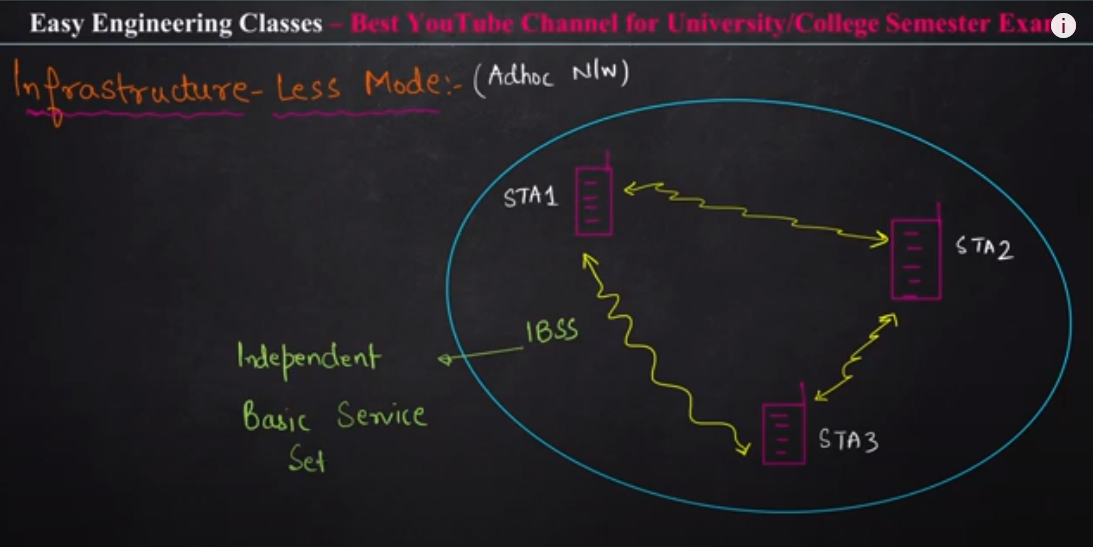 Easy Engineering Classes – Best YouTube Channel for University/College Semester Exa
Infrastructure-Less Mode:- (Adhoc N/W)
STA1
STA2
IBSS
Independent
Basic Service
Set
STA3